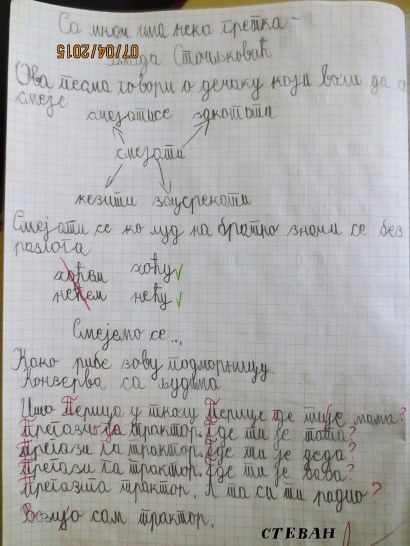 Са мном има нека гретка -
07/04/2015
Стоиљковић
Ова песма говори о дечаку који воли да се
смеје
смејатисе
смејати
кезити
Смејати се ко луд на братно значи се без
разлога
хоћем хоћу
нећем нећу
Смејемо се...
Како рибе зову подморницу
Конзерва са људима
Ишо Перица у школу. Перице где ти је мама?
Прегази га трактор. Где ти је тата?
Прегази га трактор. Где ти је деда?
Прегази га трактор. Где ти је баба?
Прегазита трактор. А шта си ти радио?
Возијо сам трактор.
СТЕВАН